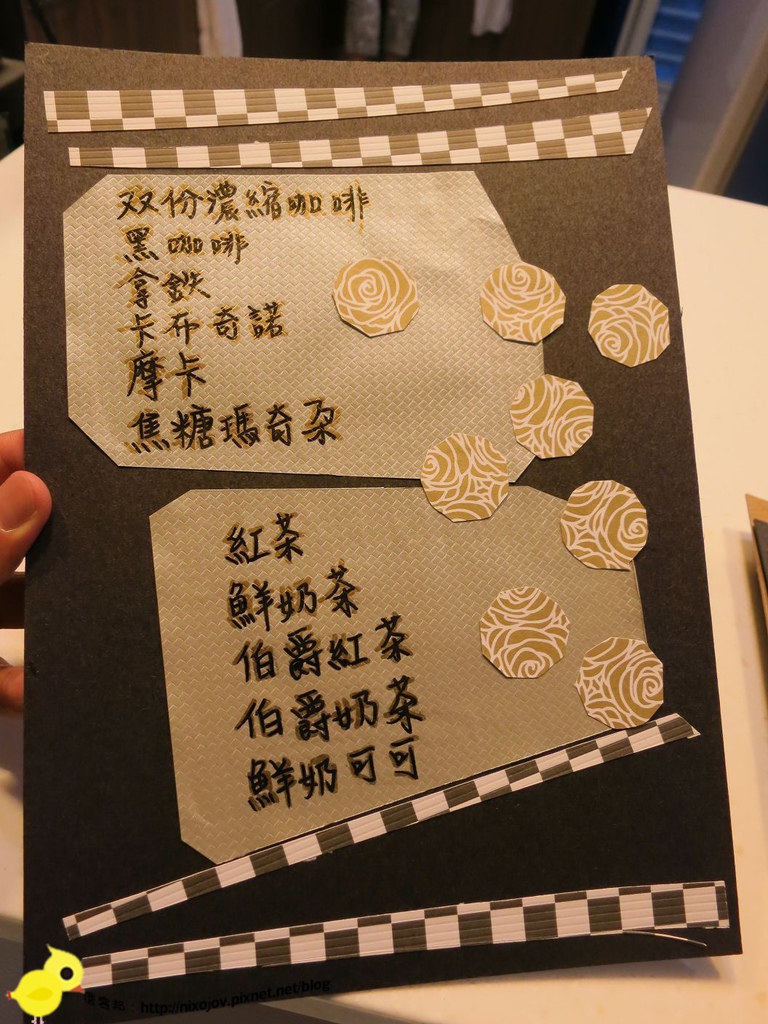 双份濃縮咖啡
黑咖啡
拿鉄
卡布奇諾
摩卡
焦糖瑪奇朵
紅茶
鮮奶茶
伯爵紅茶
伯爵奶茶
鮮奶可可
客邦：http://nixojov.pixnet.net/blog